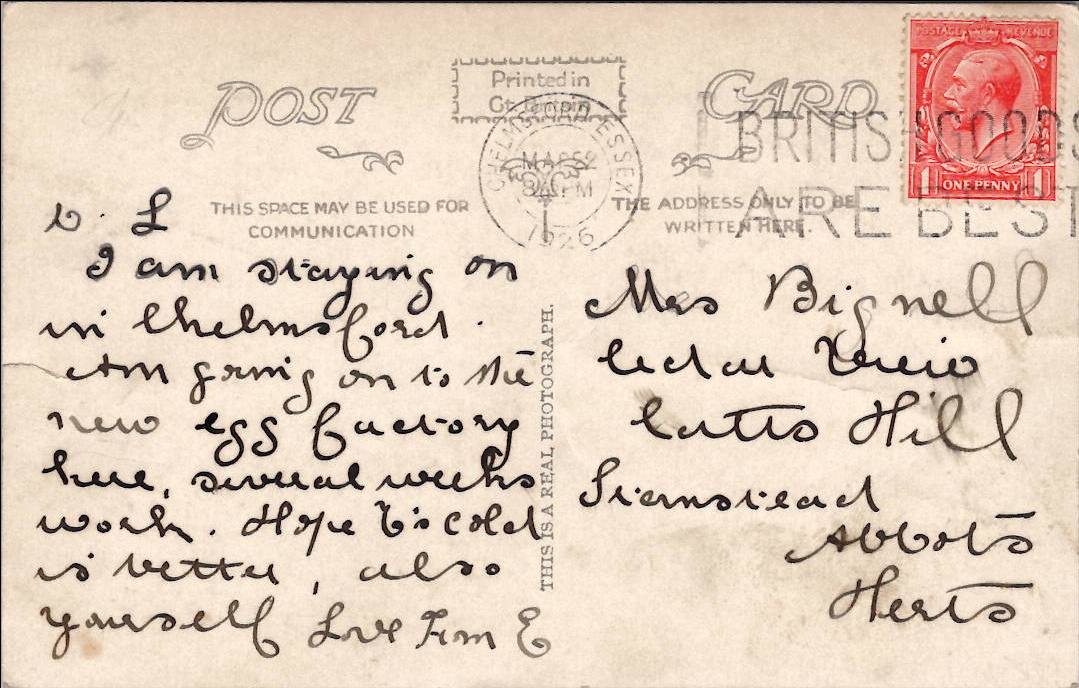 POST CARD
Printed in
Gt. Britain
CHELMSFORD ESSEX
1926
BRITISH GOODS
ARE BEST
POSTAGE REVENUE
1 ONE PENNY 1
THIS SPACE MAY BE USED FOR
COMMUNICATION
THE ADDRESS ONLY TO BE
WRITTEN HERE.
D. L
I am staying on
in Chelmsford.
Am going on to the
new egg factory
here, several weeks
work. Hope E's cold
is better, also
yourself Love From E
THIS IS A REAL PHOTOGRAPH.
Mrs Bignell
Cedar View
Catts Hill
Stanstead
Abbots
Herts